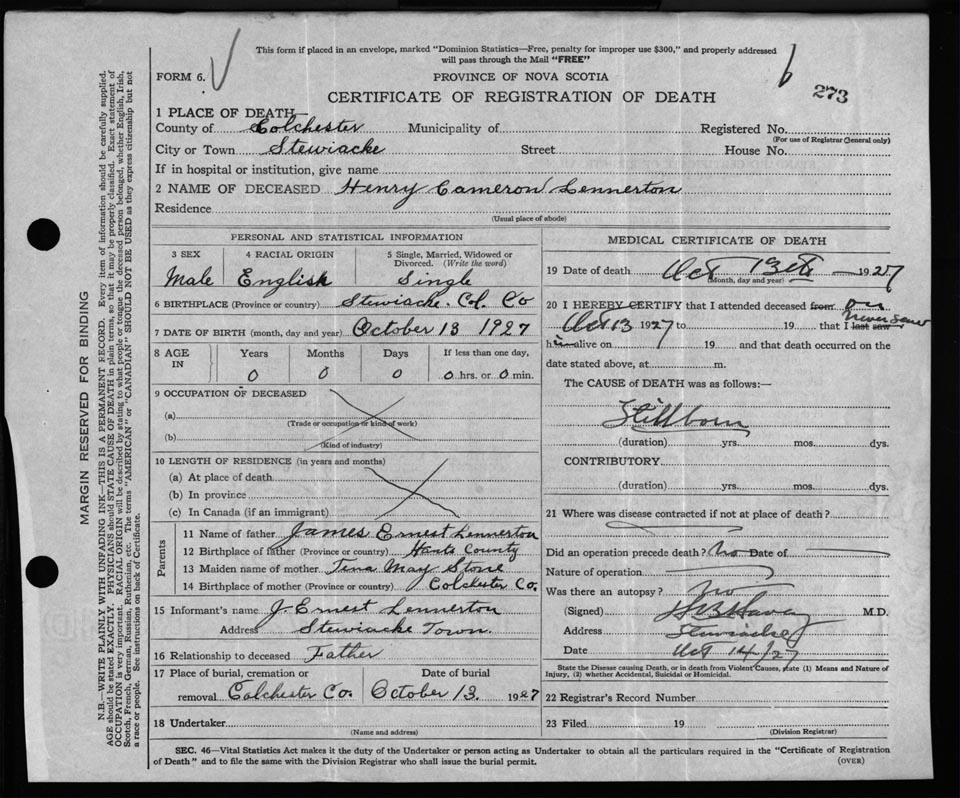 This form if placed in an envelope, marked "Dominion Statistics—Free, penalty for improper use $300," and properly addressed
will pass through the Mail "FREE"
FORM 6.
PROVINCE OF NOVA SCOTIA
6
273
CERTIFICATE OF REGISTRATION OF DEATH
MARGIN RESERVED FOR BINDING
N.B.—WRITE PLAINLY WITH UNFADING INK—THIS IS A PERMANENT RECORD. Every item of information should be carefully supplied.
AGE should be stated EXACTLY. PHYSICIANS should STATE CAUSE OF DEATH in plain terms, so that it may be properly classified. Exact statement of
OCCUPATION is very important. RACIAL ORIGIN will be described by stating to what people or tongue the deceased person belonged, whether English, Irish,
Scotch, French, German, Russian, Ruthenian, etc. The terms "AMERICAN" or "CANADIAN" SHOULD NOT BE USED as they express citizenship but not
a race or people. See instructions on back of Certificate.
1 PLACE OF DEATH
County of Colchester Municipality of Registered No.
(For use of Registrar General only)
City or Town Stewiacke Street House No.
If in hospital or institution, give name
2 NAME OF DECEASED Henry Cameron Lennerton
Residence
(Usual place of abode)
PERSONAL AND STATISTICAL INFORMATION
3 SEX 4 RACIAL ORIGIN 5 Single, Married, Widowed or
Divorced. (Write the word)
Male English Single
6 BIRTHPLACE (Province or country) Stewiacke. Col. Co
7 DATE OF BIRTH (month, day and year) October 13 1927
8 AGE IN Years Months Days If less than one day,
0 0 0 0 hrs. or 0 min.
9 OCCUPATION OF DECEASED
(a)
(Trade or occupation or kind of work)
(b)
(Kind of industry)
10 LENGTH OF RESIDENCE (in years and months)
(a) At place of death
(b) In province
(c) In Canada (if an immigrant)
Parents
11 Name of father James Ernest Lennerton
12 Birthplace of father (Province or country) Hants County
13 Maiden name of mother Tena May Stone
14 Birthplace of mother (Province or country) Colchester Co.
15 Informant's name J. Ernest Lennerton
Address Stewiacke Town.
16 Relationship to deceased Father
17 Place of burial, cremation or Date of burial
removal Colchester Co. October 13. 1927
18 Undertaker
(Name and address)
MEDICAL CERTIFICATE OF DEATH
19 Date of death Oct 13th 1927
(Month, day and year)
20 I HEREBY CERTIFY that I attended deceased from on
Oct 13 1927 to 19 that I last saw never saw
him alive on 19 and that death occurred on the
date stated above, at m.
The CAUSE of DEATH was as follows:—
Stillborn
(duration) yrs. mos. dys.
CONTRIBUTORY
(duration) yrs. mos. dys.
21 Where was disease contracted if not at place of death?
Did an operation precede death? No Date of
Nature of operation
Was there an autopsy? No
(Signed) M.D.
Address Stewiacke
Date Oct 14/27
State the Disease causing Death, or in death from Violent Causes, state (1) Means and Nature of
Injury, (2) whether Accidental, Suicidal or Homicidal.
22 Registrar's Record Number
23 Filed 19
(Division Registrar)
SEC. 46—Vital Statistics Act makes it the duty of the Undertaker or person acting as Undertaker to obtain all the particulars required in the "Certificate of Registration
of Death" and to file the same with the Division Registrar who shall issue the burial permit.
(OVER)